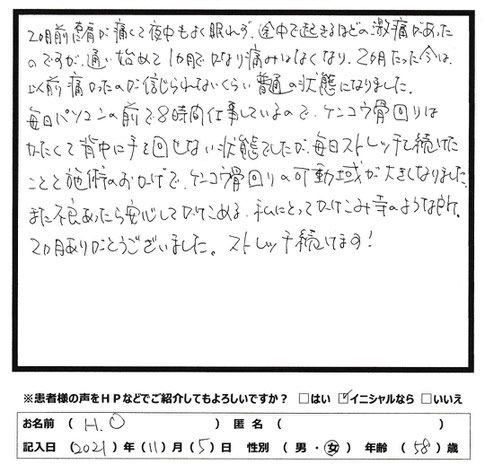 2カ月前 肩が痛くて夜中もよく眠れず、途中で起きるほどの激痛があった
のですが、通い始めて1カ月でかなり痛みはなくなり、2カ月たった今は、
以前痛かったのが信じられないくらい普通の状態になりました。
毎日パソコンの前で8時間仕事しているので、ケンコウ骨回りは
かたくて背中に手を回せない状態でしたが、毎日ストレッチを続けた
ことと施術のおかげで、ケンコウ骨回りの可動域が大きくなりました。
また不良あったら安心してかけこめる、私にとってかけこみ寺のような所。
2カ月ありがとうございました。ストレッチ続けます!
※患者様の声をHPなどでご紹介してもよろしいですか? □はい ☑イニシャルなら □いいえ
お名前 ( H.O ) 匿名 ( )
記入日 (2021)年(11)月(5)日 性別 (男・女) 年齢 (58)歳